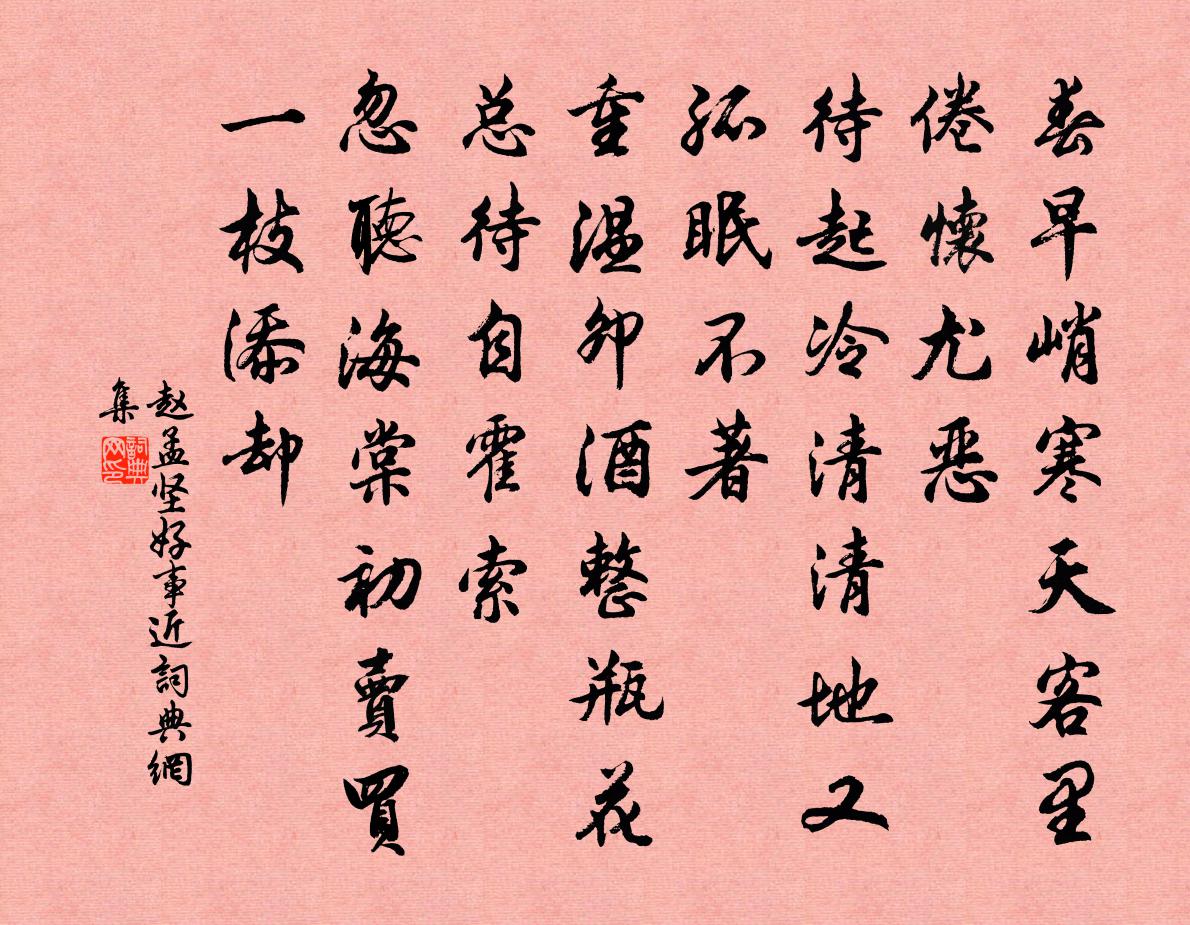 春早峭寒天客里
倦懷尤惡
待起冷清清地又
孤眠不著
重温卯酒整瓶花
总待自霍索
忽聽海棠初賣買
一枝添却
赵孟坚好事近詞典網
集
詞典
网印